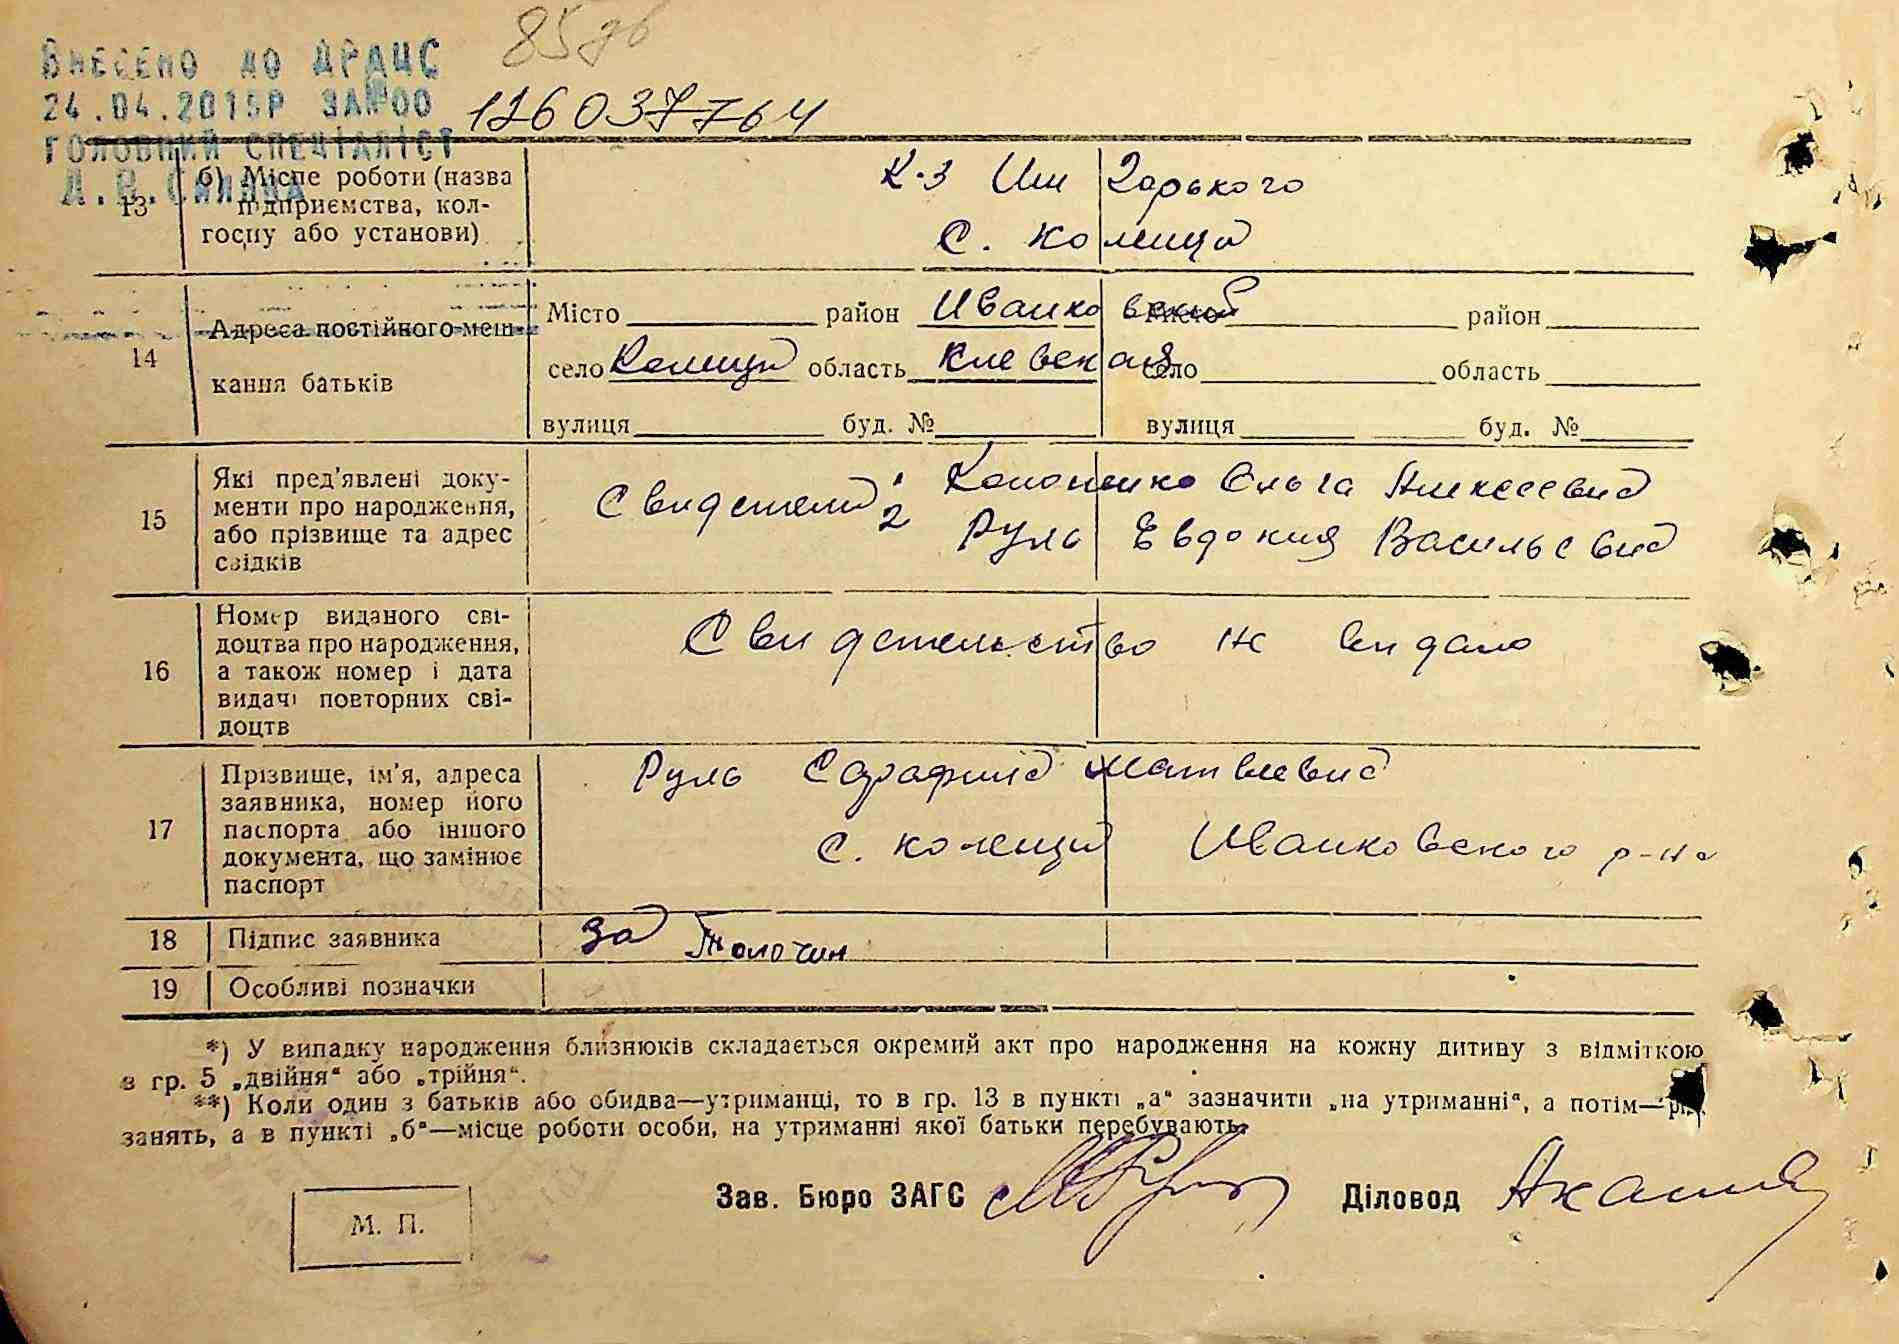 85
ВНЕСЕНО ДО ДРАЦС
24.04.2015Р ЗА №00 126037764
ГОЛОВНИЙ СПЕЦІАЛІСТ
13 б) Місце роботи (назва підприємства, кол-
госпу або установи)
К-з Им Горького
с.
14 Адреса постійного меш-
кання батьків
Місто район Иванковский Місто район
село область Киевская село область
вулиця буд. № вулиця буд. №
15 Які пред'явлені доку-
менти про народження,
або прізвище та адрес
свідків
Свидетели: Ольга Алексеевна
2 Руль Евдокия Васильевна
16 Номер виданого сві-
доцтва про народження,
а також номер і дата
видачі повторних сві-
доцтв
Свидетельство не видано
17 Прізвище, ім'я, адреса
заявника, номер його
паспорта або іншого
документа, що замінює
паспорт
Руль Матвеевна
с. Иванковского р-на
18 Підпис заявника за
19 Особливі позначки
*) У випадку народження близнюків складається окремий акт про народження на кожну дитину з відміткою
в гр. 5 „двійня“ або „трійня“.
**) Коли один з батьків або обидва—утриманці, то в гр. 13 в пункті „а“ зазначити „на утриманні“, а потім—
занять, а в пункті „б“—місце роботи особи, на утриманні якої батьки перебувають.
Зав. Бюро ЗАГС Діловод
М. П.